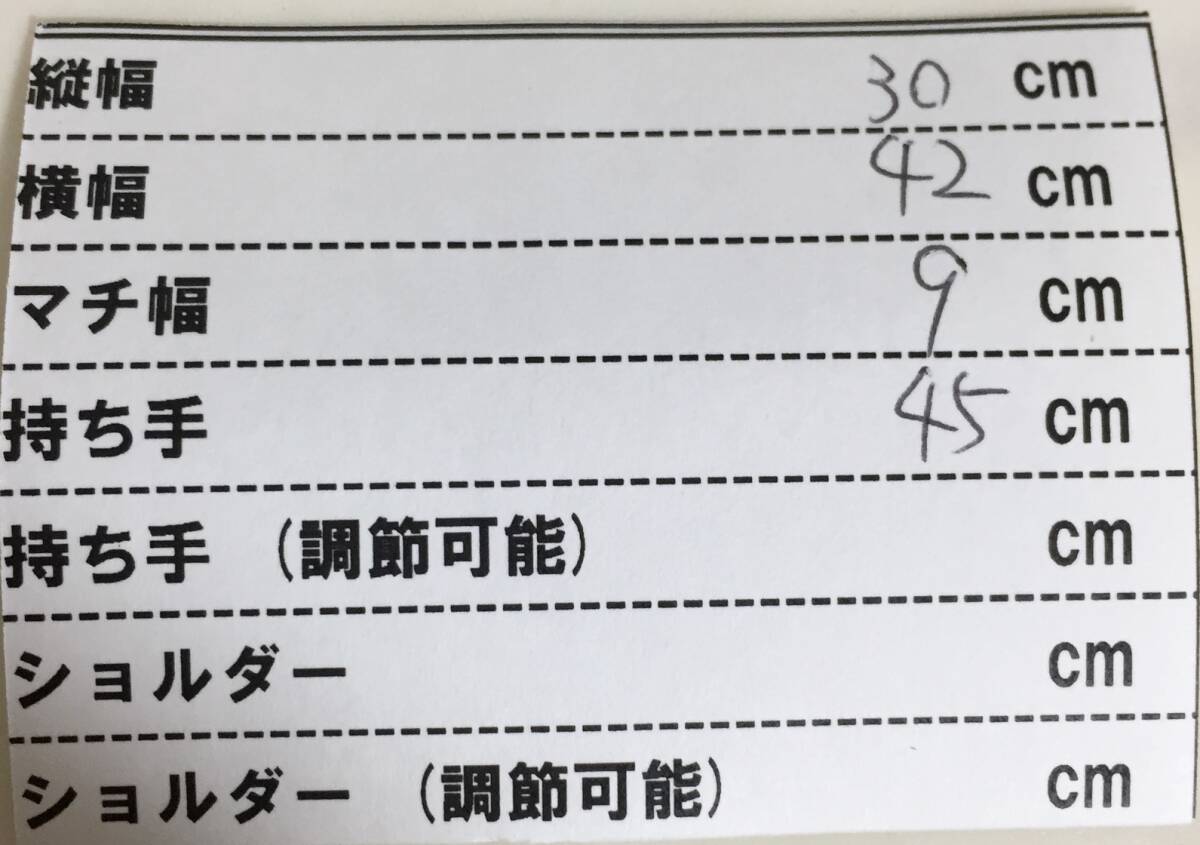 縦幅 30 cm
横幅 42 cm
マチ幅 9 cm
持ち手 45 cm
持ち手 (調節可能) cm
ショルダー cm
ショルダー (調節可能) cm